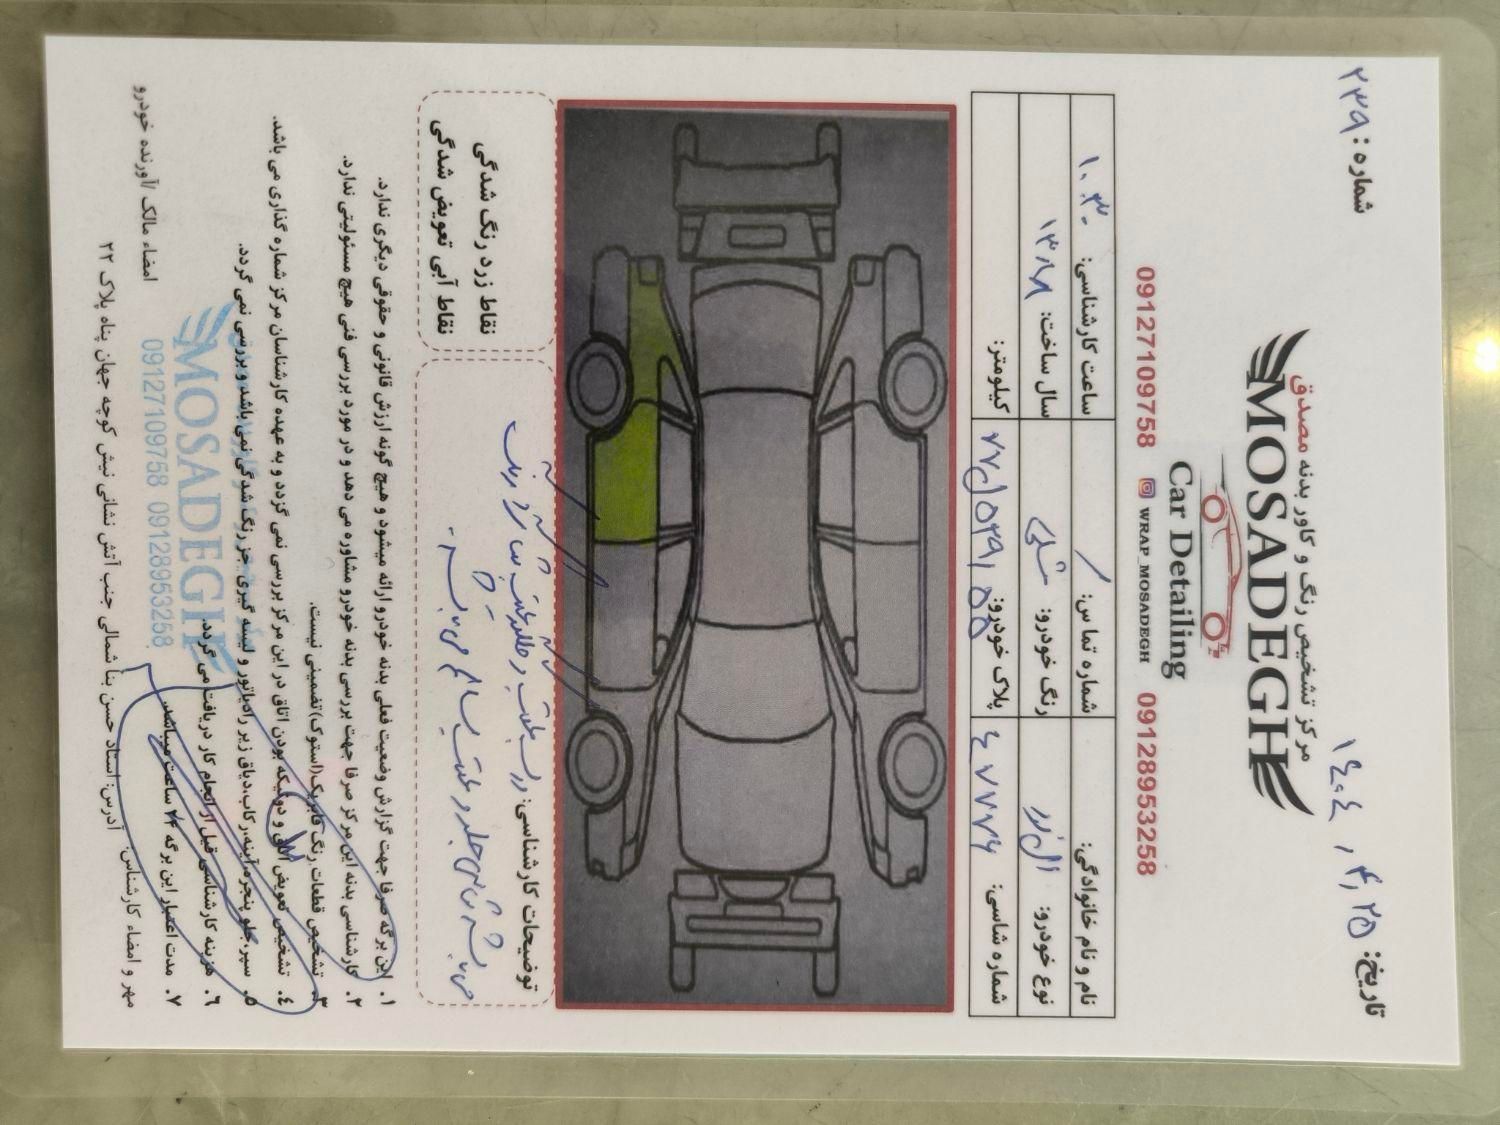 تاریخ: ۱۴۰۴,۴,۲۵
شماره: ۲۳۹
MOSADEGH
مرکز تشخیص رنگ و کاور بدنه مصدق
Car Detailing
09127109758 WRAP_MOSADEGH 09128953258
نام و نام خانوادگی: شماره تماس: ساعت کارشناسی: ۱۰.۳۰
نوع خودرو: ال نود رنگ خودرو: مشکی سال ساخت: ۱۳۸۸
شماره شاسی: ۴۷۷۷۶ پلاک خودرو: کیلومتر:
توضیحات کارشناسی: درب عقب و گلگیر عقب شاگرد رنگ
می باشد
سالم می باشد.
نقاط زرد رنگ شدگی
نقاط آبی تعویض شدگی
۱. این برگه صرفا جهت گزارش وضعیت فعلی بدنه خودرو ارائه میشود و هیچ گونه ارزش قانونی و حقوقی دیگری ندارد.
۲. کارشناسی بدنه این مرکز صرفا جهت بررسی بدنه خودرو مشاوره می دهد و در مورد بررسی فنی هیچ مسئولیتی ندارد.
۳. تشخیص قطعات رنگ فابریک(استوک)تضمینی نیست.
۴. تشخیص تعویض اتاق و دوتیکه بودن اتاق در این مرکز بررسی نمی گردد و به عهده کارشناسان مرکز شماره گذاری می باشد.
۵. سپر،جلو پنجره،آینه،رکاب،دیاق زیر رادیاتور و لیسه گیری جز رنگ شدگی نمی باشد و بررسی نمی گردد.
۶. هزینه کارشناسی قبل از انجام کار دریافت می گردد.
۷. مدت اعتبار این برگه ۲۴ ساعت میباشد.
MOSADEGH
09127109758 09128953258
مهر و امضاء کارشناس: امضاء مالک /آورنده خودرو
آدرس: استاد حسن بنا شمالی جنب آتش نشانی نبش کوچه جهان پناه پلاک ۲۲